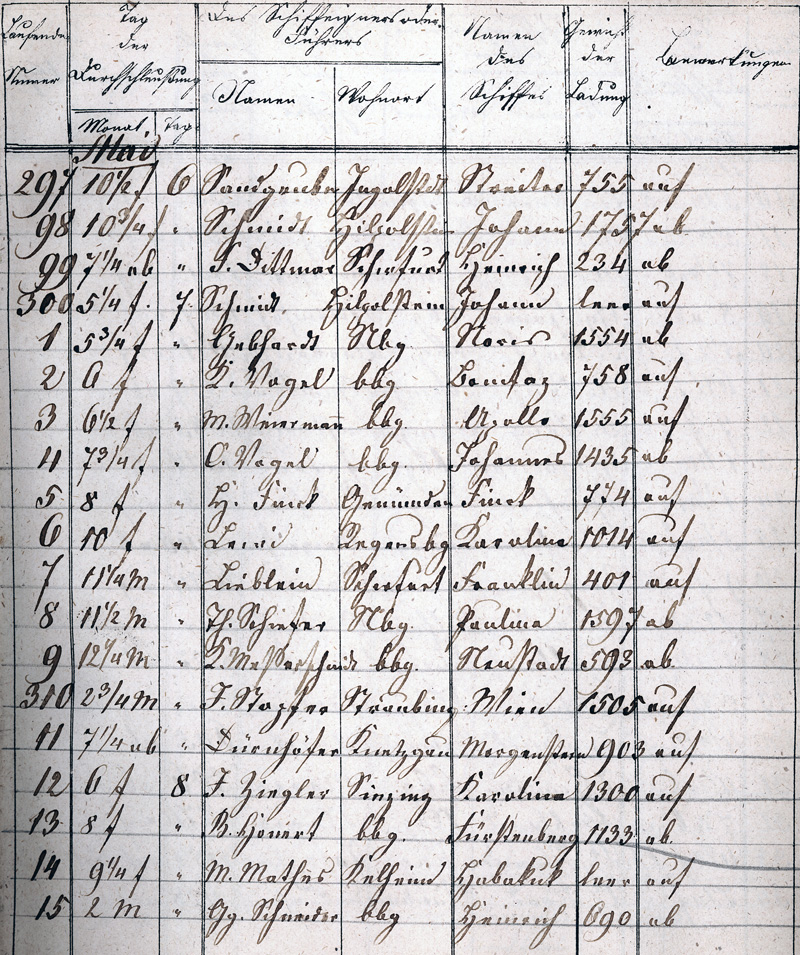 Laufende Numer
Tag der Durchschleußung
Monat. Tag.
Des Schiffeigners oder Führers
Namen
Wohnort
Namen des Schiffes
Gewicht der Ladung
Bemerkungen
Mai
297 10½ f 6 Sandgruber Ingolstdt 755 auf
98 10¾ f " Schmidt Hilpolstein Johann 1757 ab
99 7¼ ab " F. Dittmar Schwfurt Heinrich 234 ab
300 5¼ f. 7. Schmidt. Hilpolstein Johann leer auf
1 5¾ f " Gebhardt Nbg. Noris 1554 ab
2 6 f " K. Vogel bbg. Bonifaz 758 auf
3 6½ f " M. Weiermann bbg. Apollo 1555 auf
4 7¾ f " C. Vogel bbg. Johannes 1435 ab
5 8 f " H. Finck Gemünden Finck 774 auf
6 10 f " Regensbg Karolina 1014 auf
7 11¼ M " Lieblein Schwfurt Franklin 401 auf
8 11½ M " Th. Schiefer Nbg. Paulina 1597 ab
9 12¼ M " K. Messerschmidt bbg. Neustadt 593 ab
310 2¾ M " F. Stapfer Straubing. Wien 1505 auf
11 7¼ ab " Dürnhöfer Knetzgau Morgenstern 903 auf
12 6 f 8 J. Ziegler Sinzing Karolina 1300 auf
13 8 f " bbg. Fürstenberg 1133 ab
14 9¼ f " M. Mathes Kelheim Habakuk leer auf
15 2 M " Gg. Schneider bbg Heinrich 690 ab